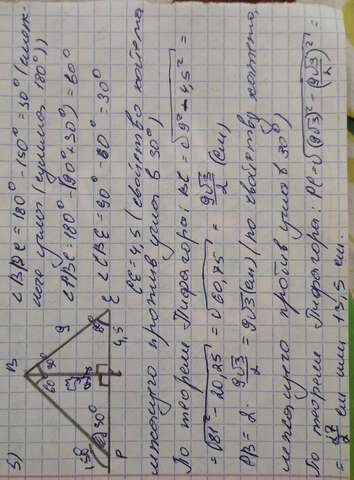 5)
B
60° 30°
9
9√3/2
150° 30°
60°
P C E
4,5
∠BPC = 180° - 150° = 30° (смеж-
ные углы (сумма 180°))
∠PBC = 180° - (90° + 30°) = 60°
∠CBE = 90° - 60° = 30°
CE = 4,5 (свойство катета
лежащего против угла в 30°)
По теореме Пифагора: BC = √9² - 4,5² =
= √81 - 20,25 = √60,75 = 9√3/2 (см)
PB = 2 · 9√3/2 = 9√3 (см) (по свойству катета,
лежащего против угла в 30°)
По теореме Пифагора: PC = √(9√3)² - (9√3/2)² =
= 27/2 см или 13,5 см.